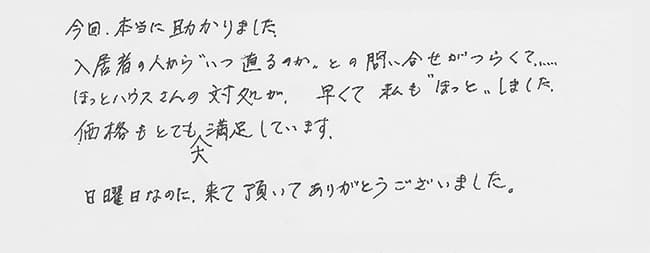 今回、本当に助かりました。
入居者の人から"いつ直るのか"との問い合せがつらくて……
ほっとハウスさんの対処が、早くて私も"ほっと"しました。
価格もとても大満足しています。
日曜日なのに、来て頂いてありがとうございました。